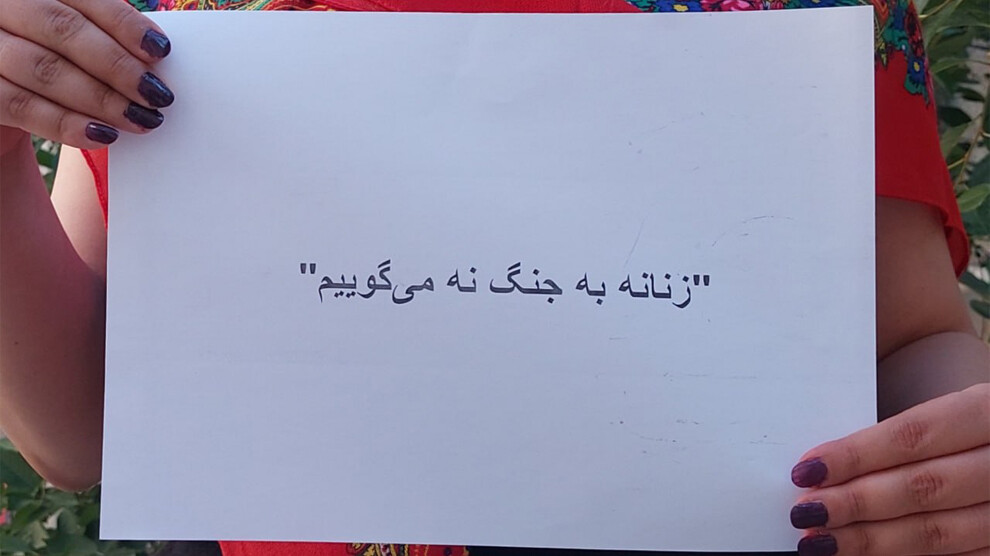 "زنانه به جنگ نه می‌گوییم"